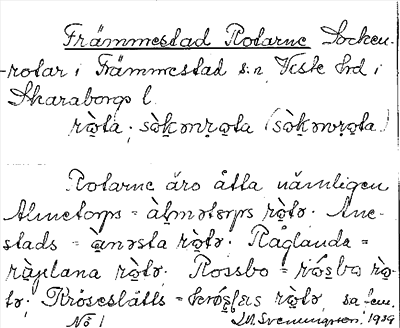 Främmestad Rotarne Socken-
rotar i Främmestad s:n Viste hrd i
Skaraborgs l.
rò̱ta; sòkənro̱ta (sòkənro̱ta)
Rotarne äro åtta nämligen
Almetorps = àlmətorps rò̱tə. Ane-
stads = ànəsta rò̱tə. Råglanda =
ràplana rò̱tə. Rossbo = rósbo rò̱-
tə; Kröseslätts = rò̱tə, sa fem.
No 1 Svenningson. 1929